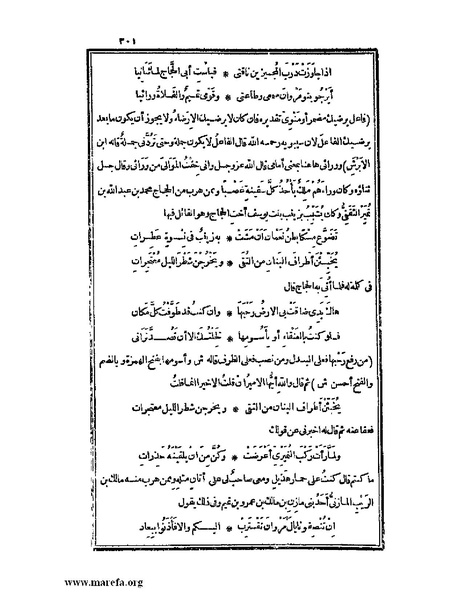 ٣٠١
اذا جاوزت درب المجيزين ناقتي * فباست أبي الحجاج لما ثنانيا
أيرجو بنو مروان سمعي وطاعتي * وقومي تميم والفلاة ورائيا
(فاعل يرضيك مضمر أو منوي تقديره فان كان لا يرضيك الارضاء ولا يجوز أن يكون ما بعد
يرضيك الفاعل لان سيبويه رحمه الله قال الفاعل لا يكون جملة وحتى تردني جملة قاله ابن
الابرش) وورائي هاهنا بمعنى أمامي قال الله عز وجل واني خفت الموالي من ورائي وقال جل
ثناؤه وكان وراءهم ملك يأخذ كل سفينة غصبا وممن هرب من الحجاج محمد بن عبد الله بن
نمير الثقفي وكان يشبب بزينب بنت يوسف أخت الحجاج وهو القائل فيها
تضوع مسكا بطن نعمان أن مشت * به زينب في نسوة عطرات
يخبئن أطراف البنان من التقى * ويخرجن شطر الليل معتجرات
في كلمة له فلما أتي به الحجاج قال
هاك يدي ضاقت بي الارض رحبها * وان كنت قد طوفت كل مكان
فلو كنت بالعنقاء أو بأسومها * خلتك الا أن تصد تراني
(من رفع رحبها فعلى البدل ومن نصب فعلى الظرف قاله ش وأسومها بفتح الهمزة وبالضم
والفتح أحسن ش) ثم قال والله أيها الامير ان قلت الا خيرا انما قلت
يخبئن أطراف البنان من التقى * ويخرجن شطر الليل معتجرات
فعفا عنه ثم قال له اخبرني عن قولك
ولما رأت ركب النميري أعرضت * وكن من ان يلقينه حذرات
ما كنتم قال كنت على حمار هزيل ومعي صاحب لي على أتان مثله وممن هرب منه مالك بن
الريب المازني أحد بني مازن بن مالك بن عمرو بن تميم وفي ذلك يقول
ان تنصفونا يال مروان نقترب * اليكم والا فأذنوا ببعاد
www.marefa.org